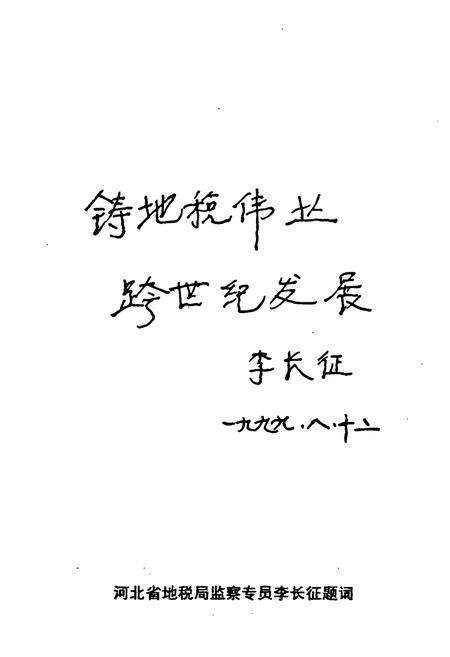 铸地税伟业
跨世纪发展
李长征
一九九九.八.十二
河北省地税局监察专员李长征题词